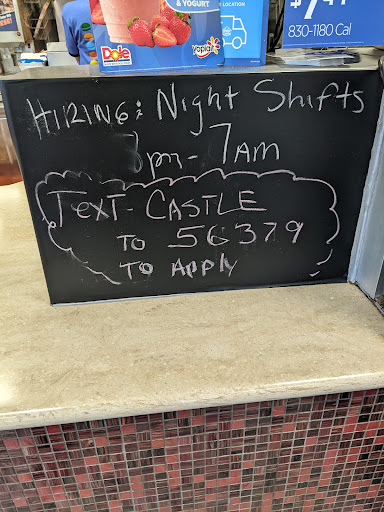 & YOGURT
LOCATION
Dole
Yoplait
830-1180 Cal
HIRING: Night Shifts
pm - 7AM
TEXT - CASTLE
TO 56379
TO APPly